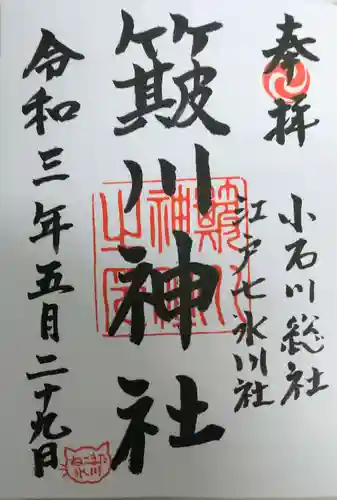 奉拝
小石川総社
江戸七氷川社
簸川神社
令和三年五月二十九日
ねこまた川